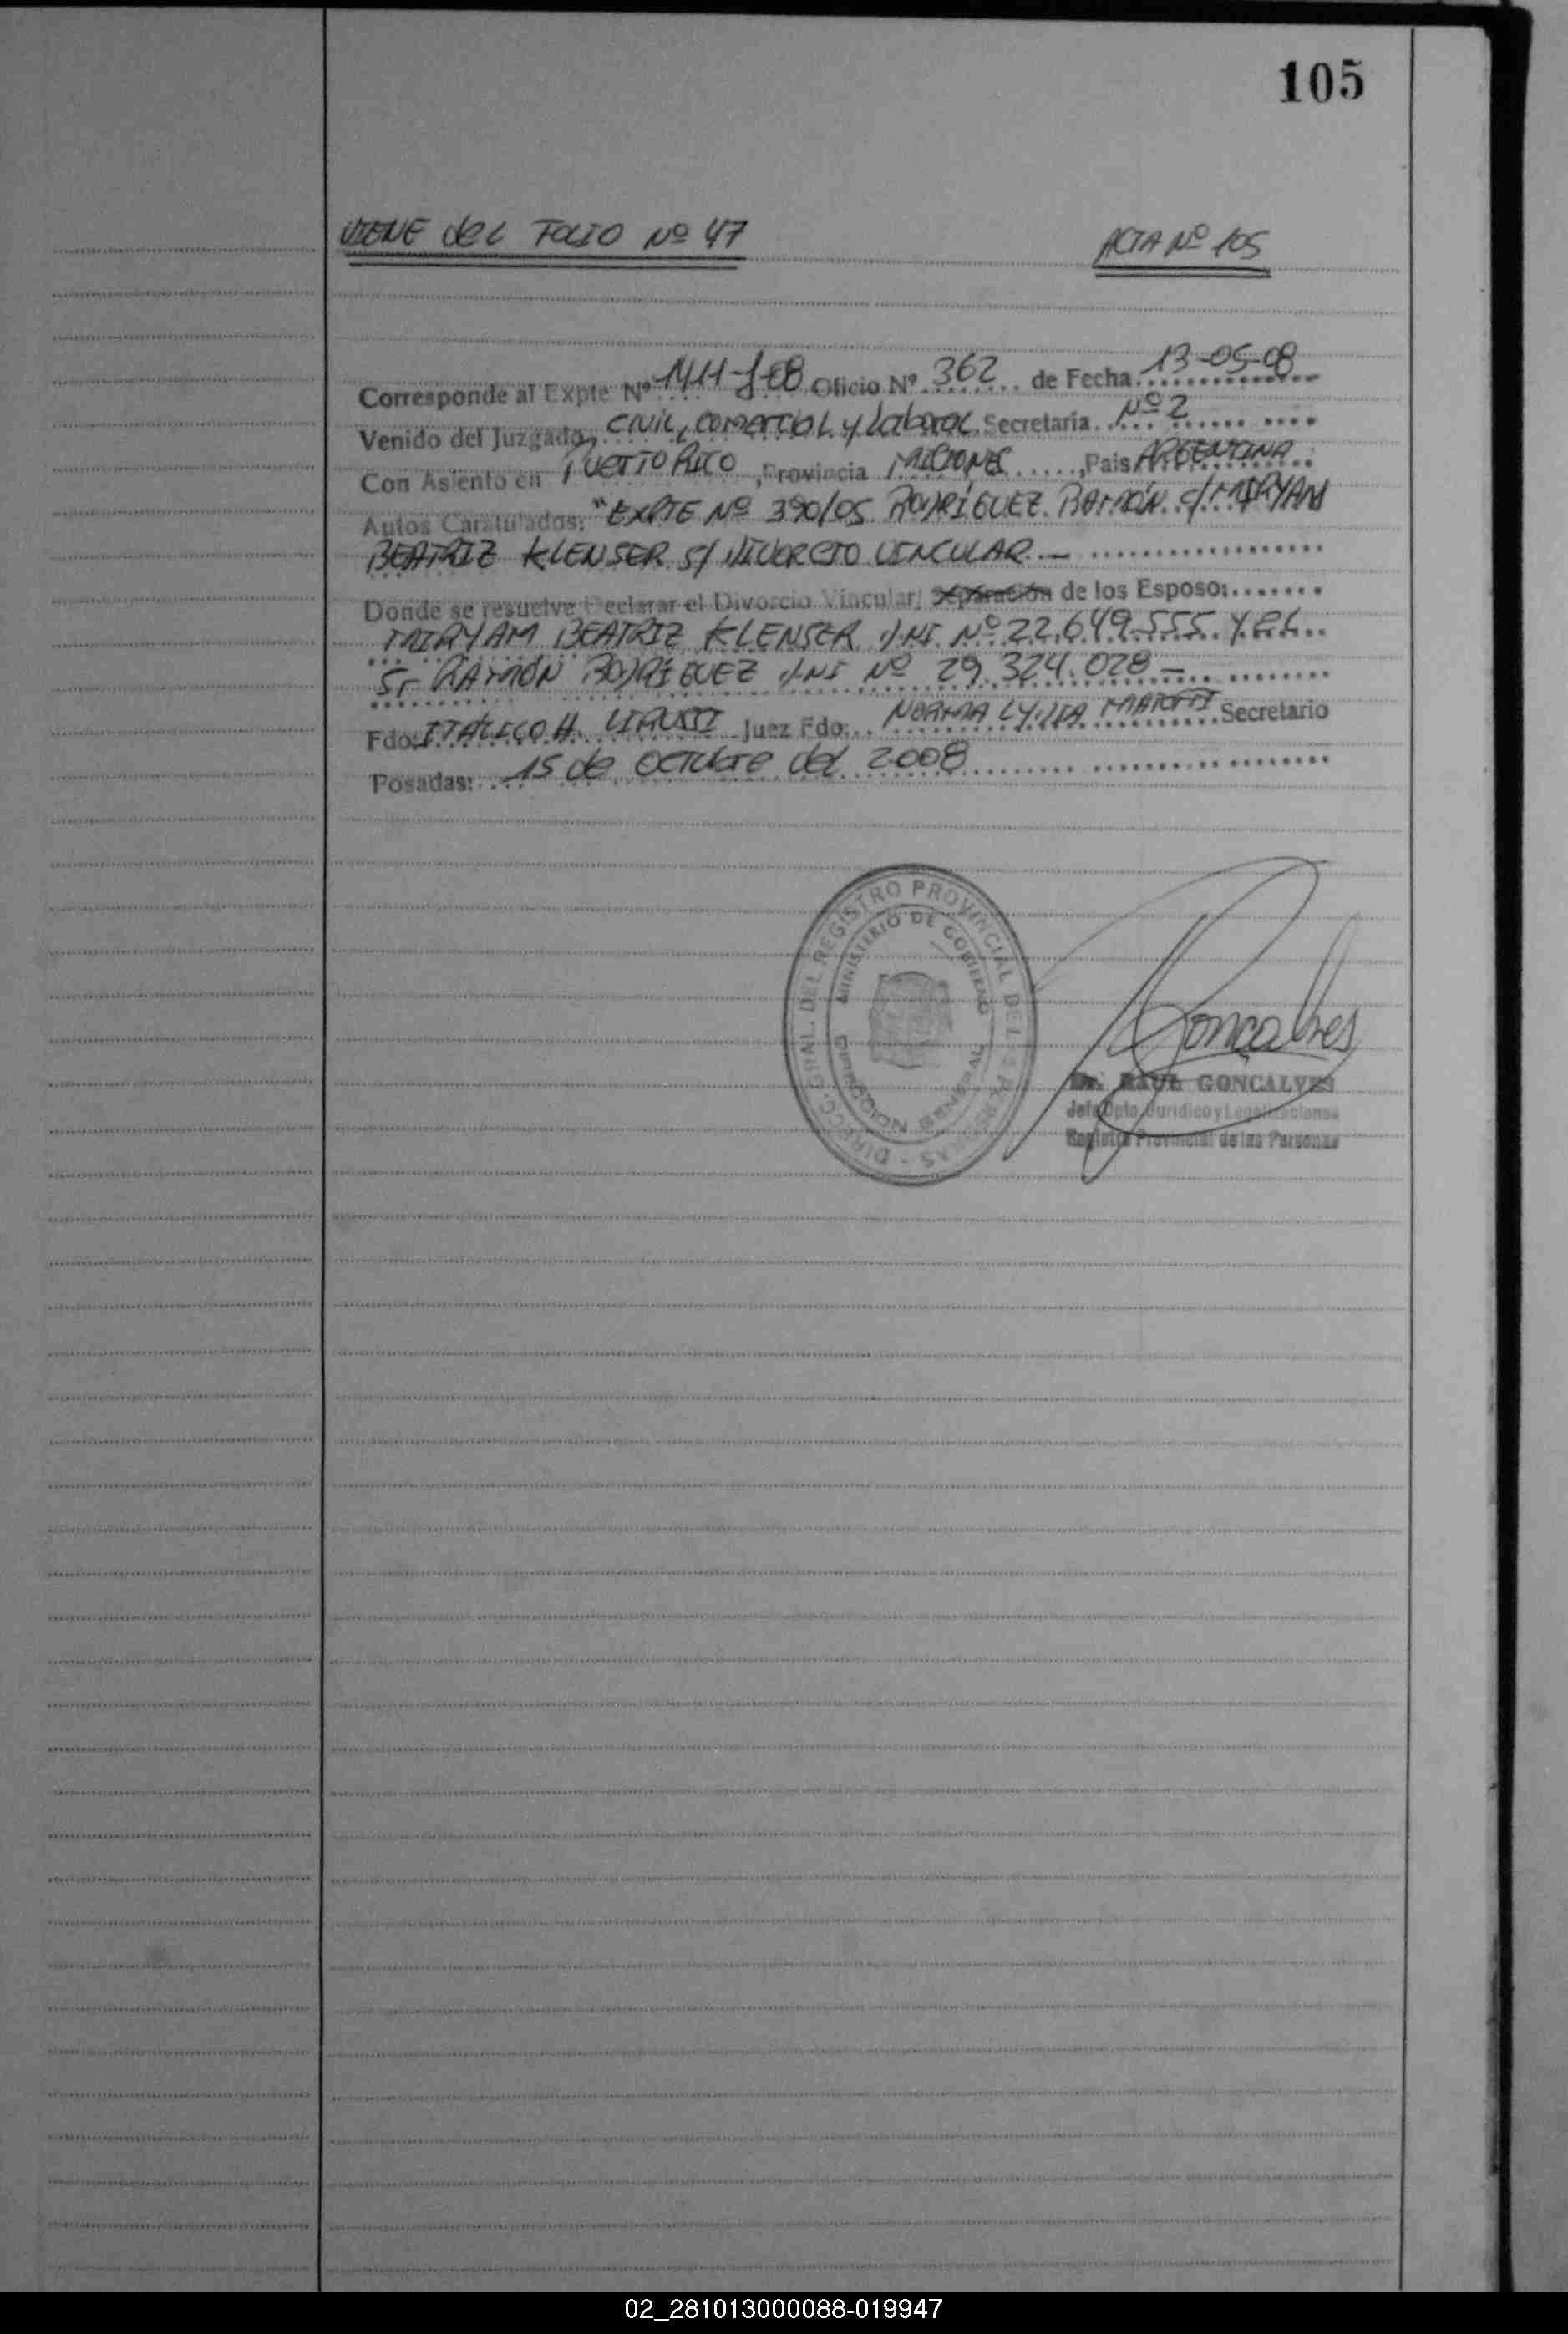 105
VIENE del FOLIO Nº 47 ACTA Nº 105
Corresponde al Expte Nº 1411-J-08 Oficio Nº 362 de Fecha 13-05-08
Venido del Juzgado, CIVIL, COMERCIAL y Laboral Secretaria Nº 2
Con Asiento en PUERTO RICO, Provincia MISIONES, Pais ARGENTINA
Autos Caratulados: "EXPTE Nº 390/05 RODRÍGUEZ RAMÓN c/ MIRYAM
BEATRIZ KLENSER s/ DIVORCIO VINCULAR -
Donde se resuelve Declarar el Divorcio Vincular, Separación de los Esposo:
MIRYAM BEATRIZ KLENSER DNI Nº 22.649.555 y el
Sr RAMÓN RODRÍGUEZ DNI Nº 29.324.028 -
Fdo: ITALICO H. Juez Fdo: NORMA LYDIA Secretario
Posadas: 15 de OCTUBRE del 2008
DIRECC. GRAL. DEL REGISTRO PROVINCIAL DE LAS PERSONAS
MINISTERIO DE GOBIERNO
DIRECCION GENERAL
Goncalves
Dr. RAUL GONCALVES
Jefe Dpto. Juridico y Legalizaciones
Registro Provincial de las Personas
02_281013000088-019947